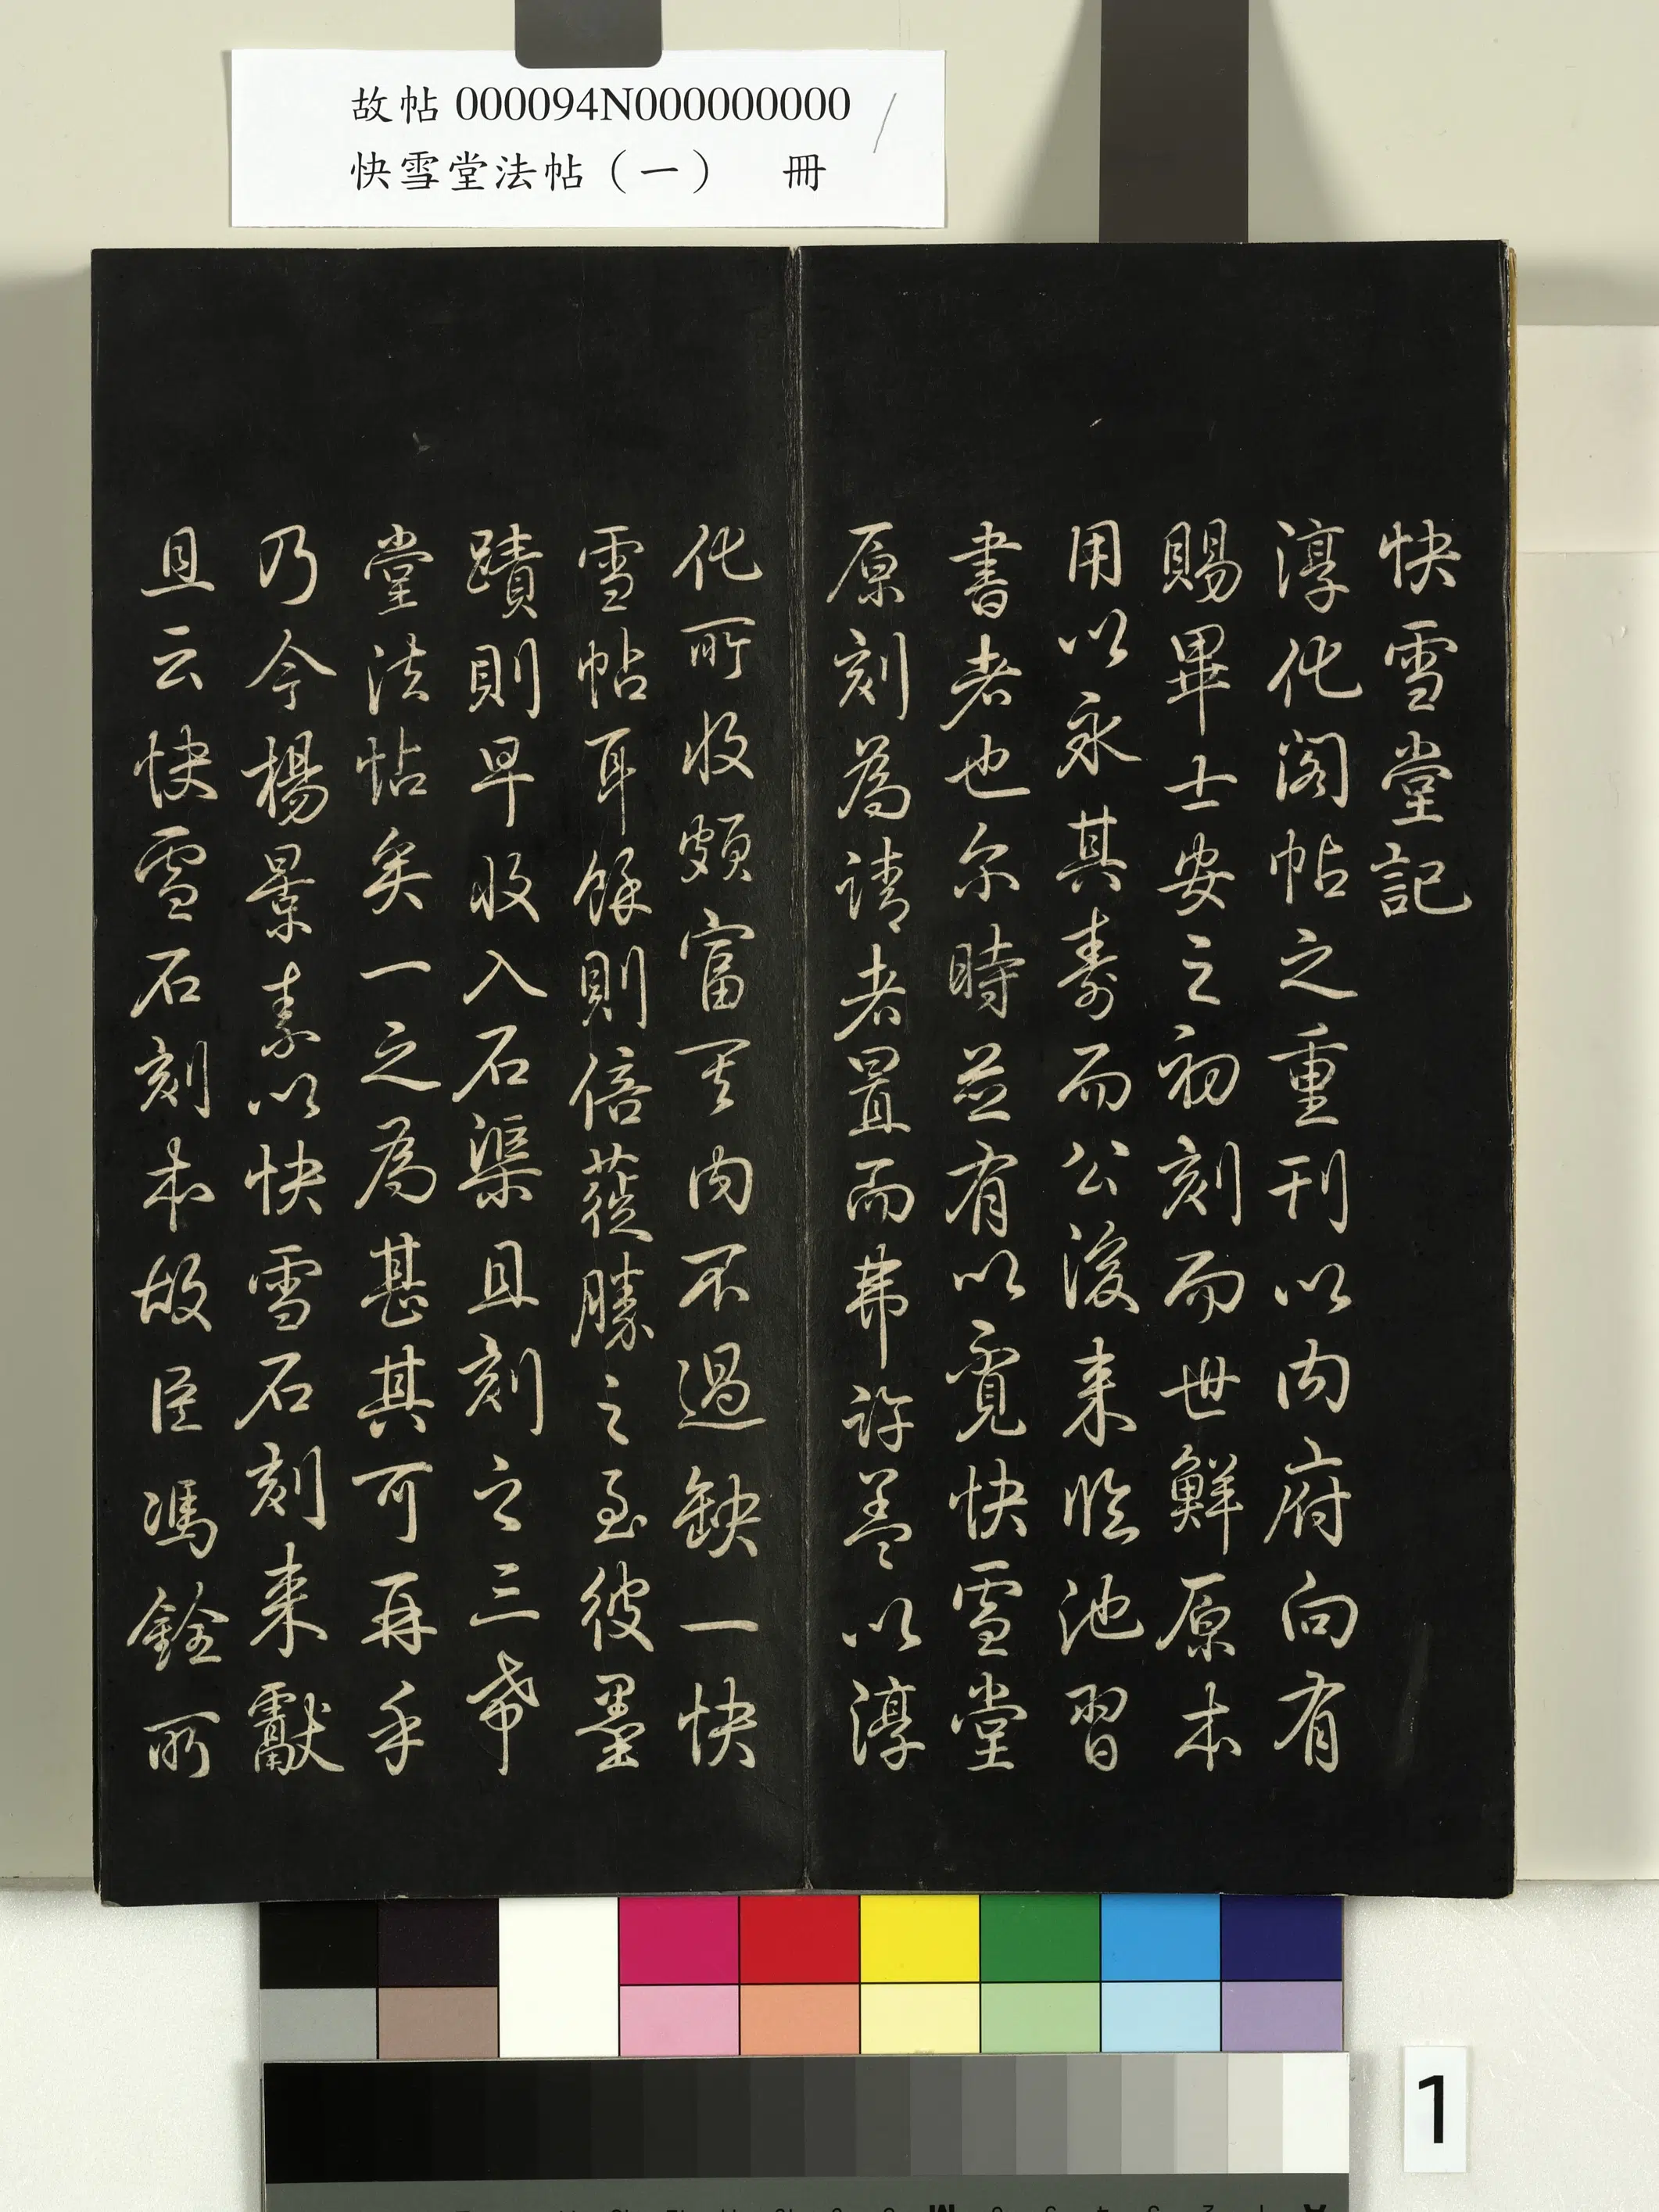 故帖 000094N000000000
快雪堂法帖（一） 冊
快雪堂記
淳化閣帖之重刊以内府向有
賜畢士安之初刻而世鮮原本
用以永其壽而公後来臨池習
書者也尓時並有以覓快雪堂
原刻為請者置而弗許盖以淳
化所收頗富其内不過缺一快
雪帖耳餘則倍蓰勝之至彼墨
蹟則早收入石渠且刻之三希
堂法帖矣一之為甚其可再乎
乃今楊景素以快雪石刻来獻
且云快雪石刻本故臣馮銓所
1